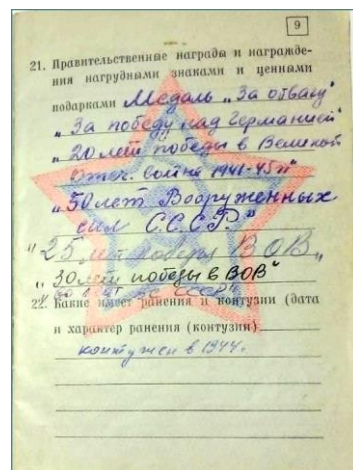 9
21. Правительственные награды и награжде-
ния нагрудными знаками и ценными
подарками Медаль „За отвагу"
„За победу над Германией"
„20 лет победы в Великой
Отеч. войне 1941-45 гг"
„50 лет Вооруженных
сил С.С.С.Р."
„25 лет победы В О В„
„30 лет победы в ВОВ"
60 лет ВС СССР
22. Какие имеет ранения и контузии (дата
и характер ранения (контузии)
контужен в 1944.